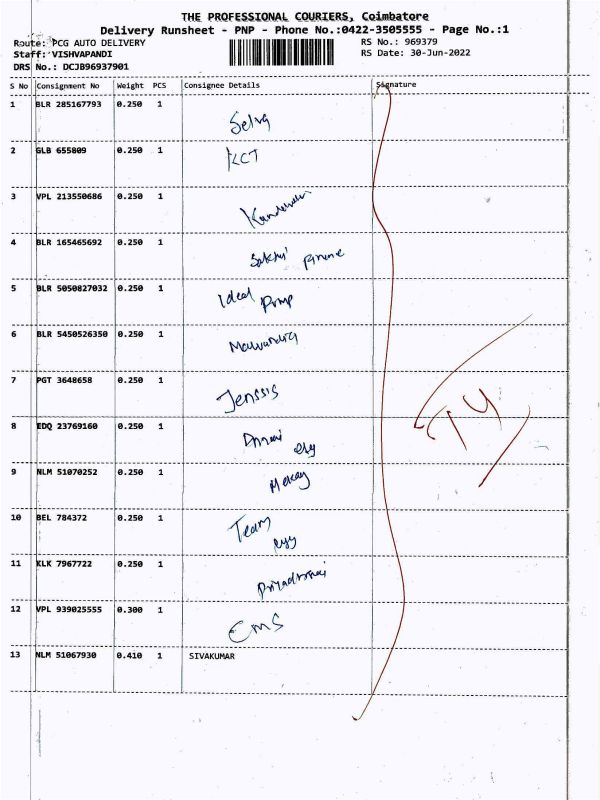 THE PROFESSIONAL COURIERS, Coimbatore
Delivery Runsheet - PNP - Phone No.:0422-3505555 - Page No.:1
Route: PCG AUTO DELIVERY
RS No.: 969379
Staff: VISHVAPANDI
RS Date: 30-Jun-2022
DRS No.: DCJB96937901
S No Consignment No Weight PCS Consignee Details Signature
1 BLR 285167793 0.250 1
Selva
2 GLB 655809 0.250 1
KCT
3 VPL 213550686 0.250 1
4 BLR 165465692 0.250 1
Sakthi
5 BLR 5050827032 0.250 1
Ideal
Pump
6 BLR 5450526350 0.250 1
7 PGT 3648658 0.250 1
Jenssis
8 EDQ 23769160 0.250 1
9 NLM 51070252 0.250 1
10 BEL 784372 0.250 1
Team
11 KLK 7967722 0.250 1
12 VPL 939025555 0.300 1
EMS
13 NLM 51067930 0.410 1 SIVAKUMAR